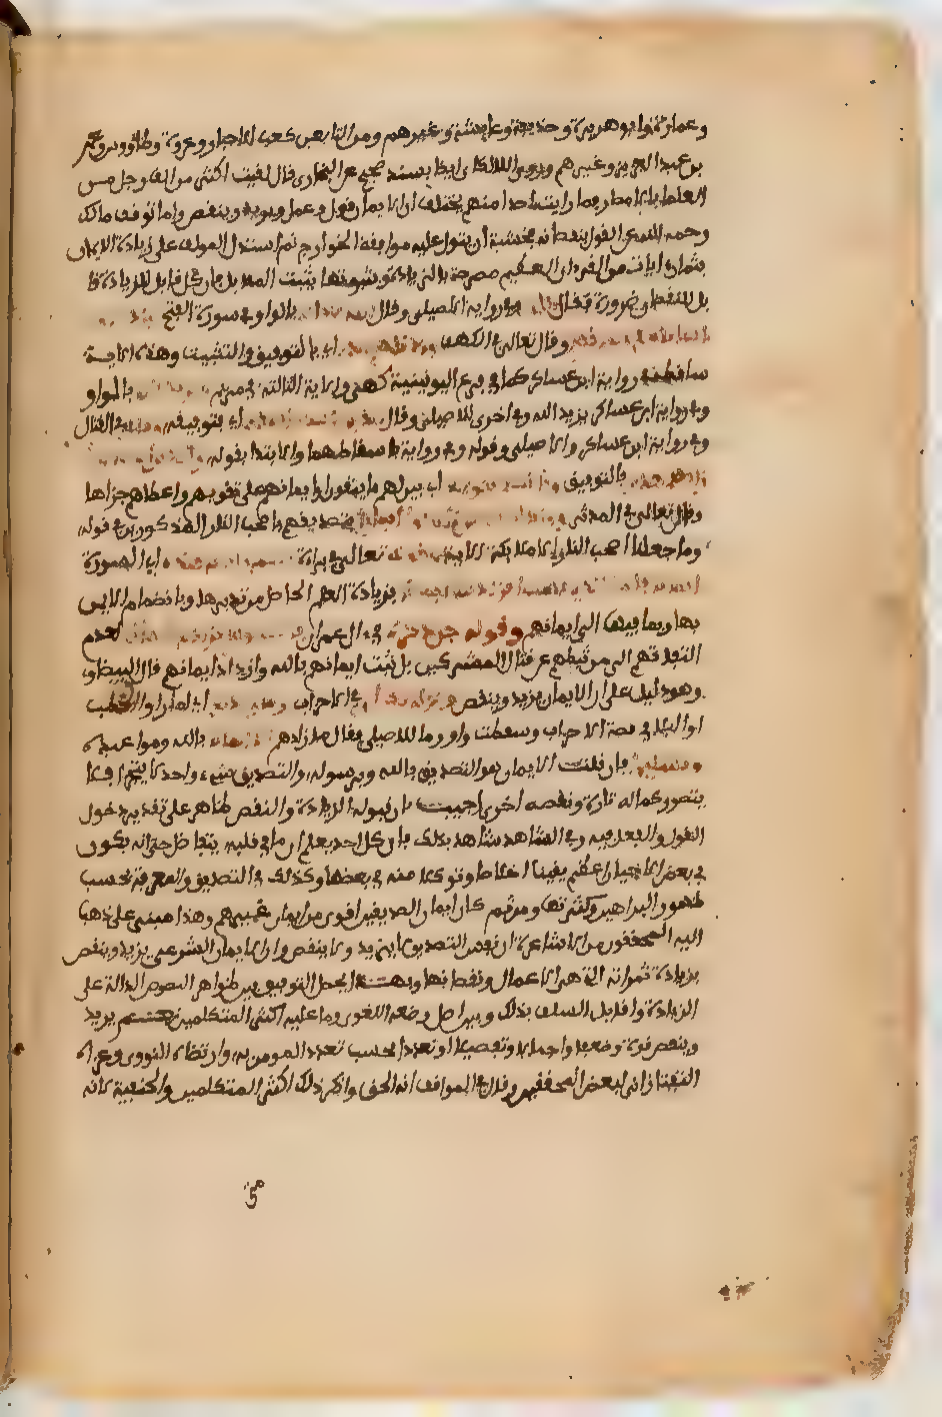 وعمار وابو هريرة وحذيفة وعايشة وغيرهم ومن التابعين كعب الاحبار وعروة وطاووس وعمر
بن عبد العزيز وغيرهم وروى اللالكاى ايضا بسند صحيح عن البخارى قال لقيت اكثر من الف رجل من
العلماء بالامصار فما رايت احدا منهم يختلف ان الايمان قول وعمل ويزيد وينقص واما توقف مالك
رحمه الله عن القول بنقصانه فخشية ان يتاول عليه موافقة الخوارج ثم استدل المولف على زيادة الايمان
بثمان ايات من القرءان العظيم مصرحة بالزيادة وبثبوتها يثبت المقابل فان كل قابل للزيادة قا
بل للنقصان ضرورة فقال وفى رواية الاصيلى وقال بالواو فى سورة الفتح
وقال تعالى فى الكهف وزدناهم هدى اى بالتوفيق والتثبيت وهذه الاية
ساقطة فى رواية ابن عساكر كما فى فرع اليونينية كهى والاية الثالثة فى مريم بالواو
وفى رواية ابن عساكر يزيد الله وفى اخرى للاصيلى وقال اى بتوفيقه فى القتال
وفى رواية ابن عساكر والاصيلى وقوله وفى رواية باسقاطهما والابتدا بقوله
بالتوفيق اى بين لهم ما يتقون او اعانهم على تقويهم واعطاهم جزاها
وقال تعالى فى المدثر بتصديقهم باصحب النار المذكورين فى قوله
وما جعلنا اصحب النار الا ملائكة الاية تعالى فى براءة اى السورة
بزيادة العلم الحاصل من تدبرها وبانضمام الايمن
بها وبما فيها الى ايمانهم وقوله جل ذكره فى ال عمران لعدم
التفاتهم الى من ثبطهم عن قتال المشركين بل ثبت ايمانهم بالله وازداد ايمانهم قال البيضاوى
وهو دليل على ان الايمان يزيد وينقص وقوله تعالى فى الاحزاب اى لما راوا الخطب
او البلا فى قصة الاحزاب وسقطت واو وما للاصيلى فقال ما زادهم الا ايمانا بالله ومواعيده
وتسليما فان قلت الايمان هو التصديق بالله وبرسوله والتصديق شىء واحد لا يتجزا فلا
يتصور كماله تارة ونقصه اخرى اجيب بان قبوله الزيادة والنقص ظاهر على تقدير دخول
القول والفعل فيه وفى الشاهد شاهد بذلك فان كل احد يعلم ان ما فى قلبه يتفاضل حتى انه يكون
فى بعض الاحيان اعظم يقينا اخلاصا وتوكلا منه فى بعضها وكذلك فى التصديق والمعرفة بحسب
ظهور البراهين وكثرتها ومن ثم كان ايمان الصديقين اقوى من ايمان غيرهم وهذا مبنى على ذهب
اليه المحققون من الاشاعرة ان نفس التصديق لا يزيد ولا ينقص وان الايمان الشرعى يزيد وينقص
بزيادة ثمراته التى هى الاعمال ونقصانها وبهذا يحصل التوفيق بين ظواهر النصوص الدالة على
الزيادة واقاويل السلف بذلك وبين اصل وضعه اللغوى وما عليه اكثر المتكلمين نعم يزيد
وينقص قوة وضعفا واجمالا وتفصيلا او تعددا بحسب تعدد المومن به وارتضاه النووى وعزاه
التفتازانى لبعض المحققين وقال فى المواقف انه الحق وانكر ذلك اكثر المتكلمين والحنفية لانه